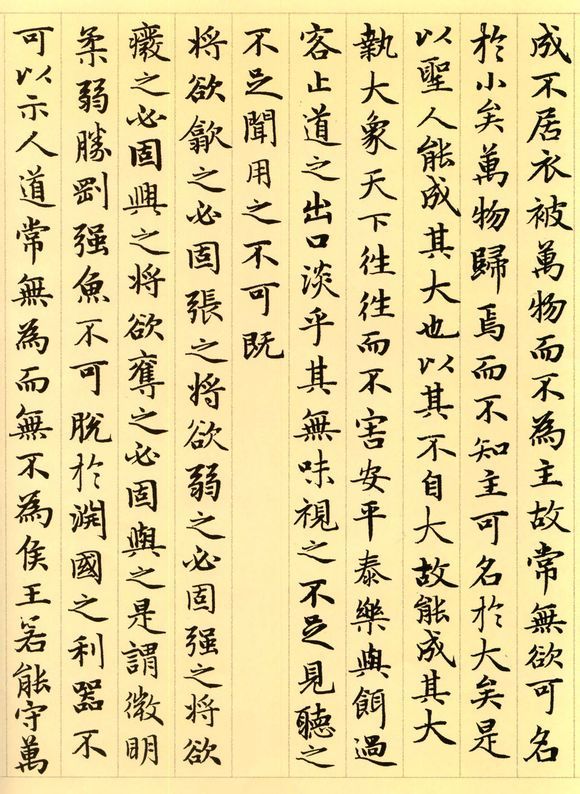 成不居衣被萬物而不為主故常無欲可名
於小矣萬物歸焉而不知主可名於大矣是
以聖人能成其大也以其不自大故能成其大
執大象天下往往而不害安平泰樂與餌過
客止道之出口淡乎其無味視之不足見聽之
不足聞用之不可既
將欲歙之必固張之將欲弱之必固强之將欲
廢之必固興之將欲奪之必固與之是謂微明
柔弱勝剛强魚不可脫於淵國之利器不
可以示人道常無為而無不為侯王若能守萬